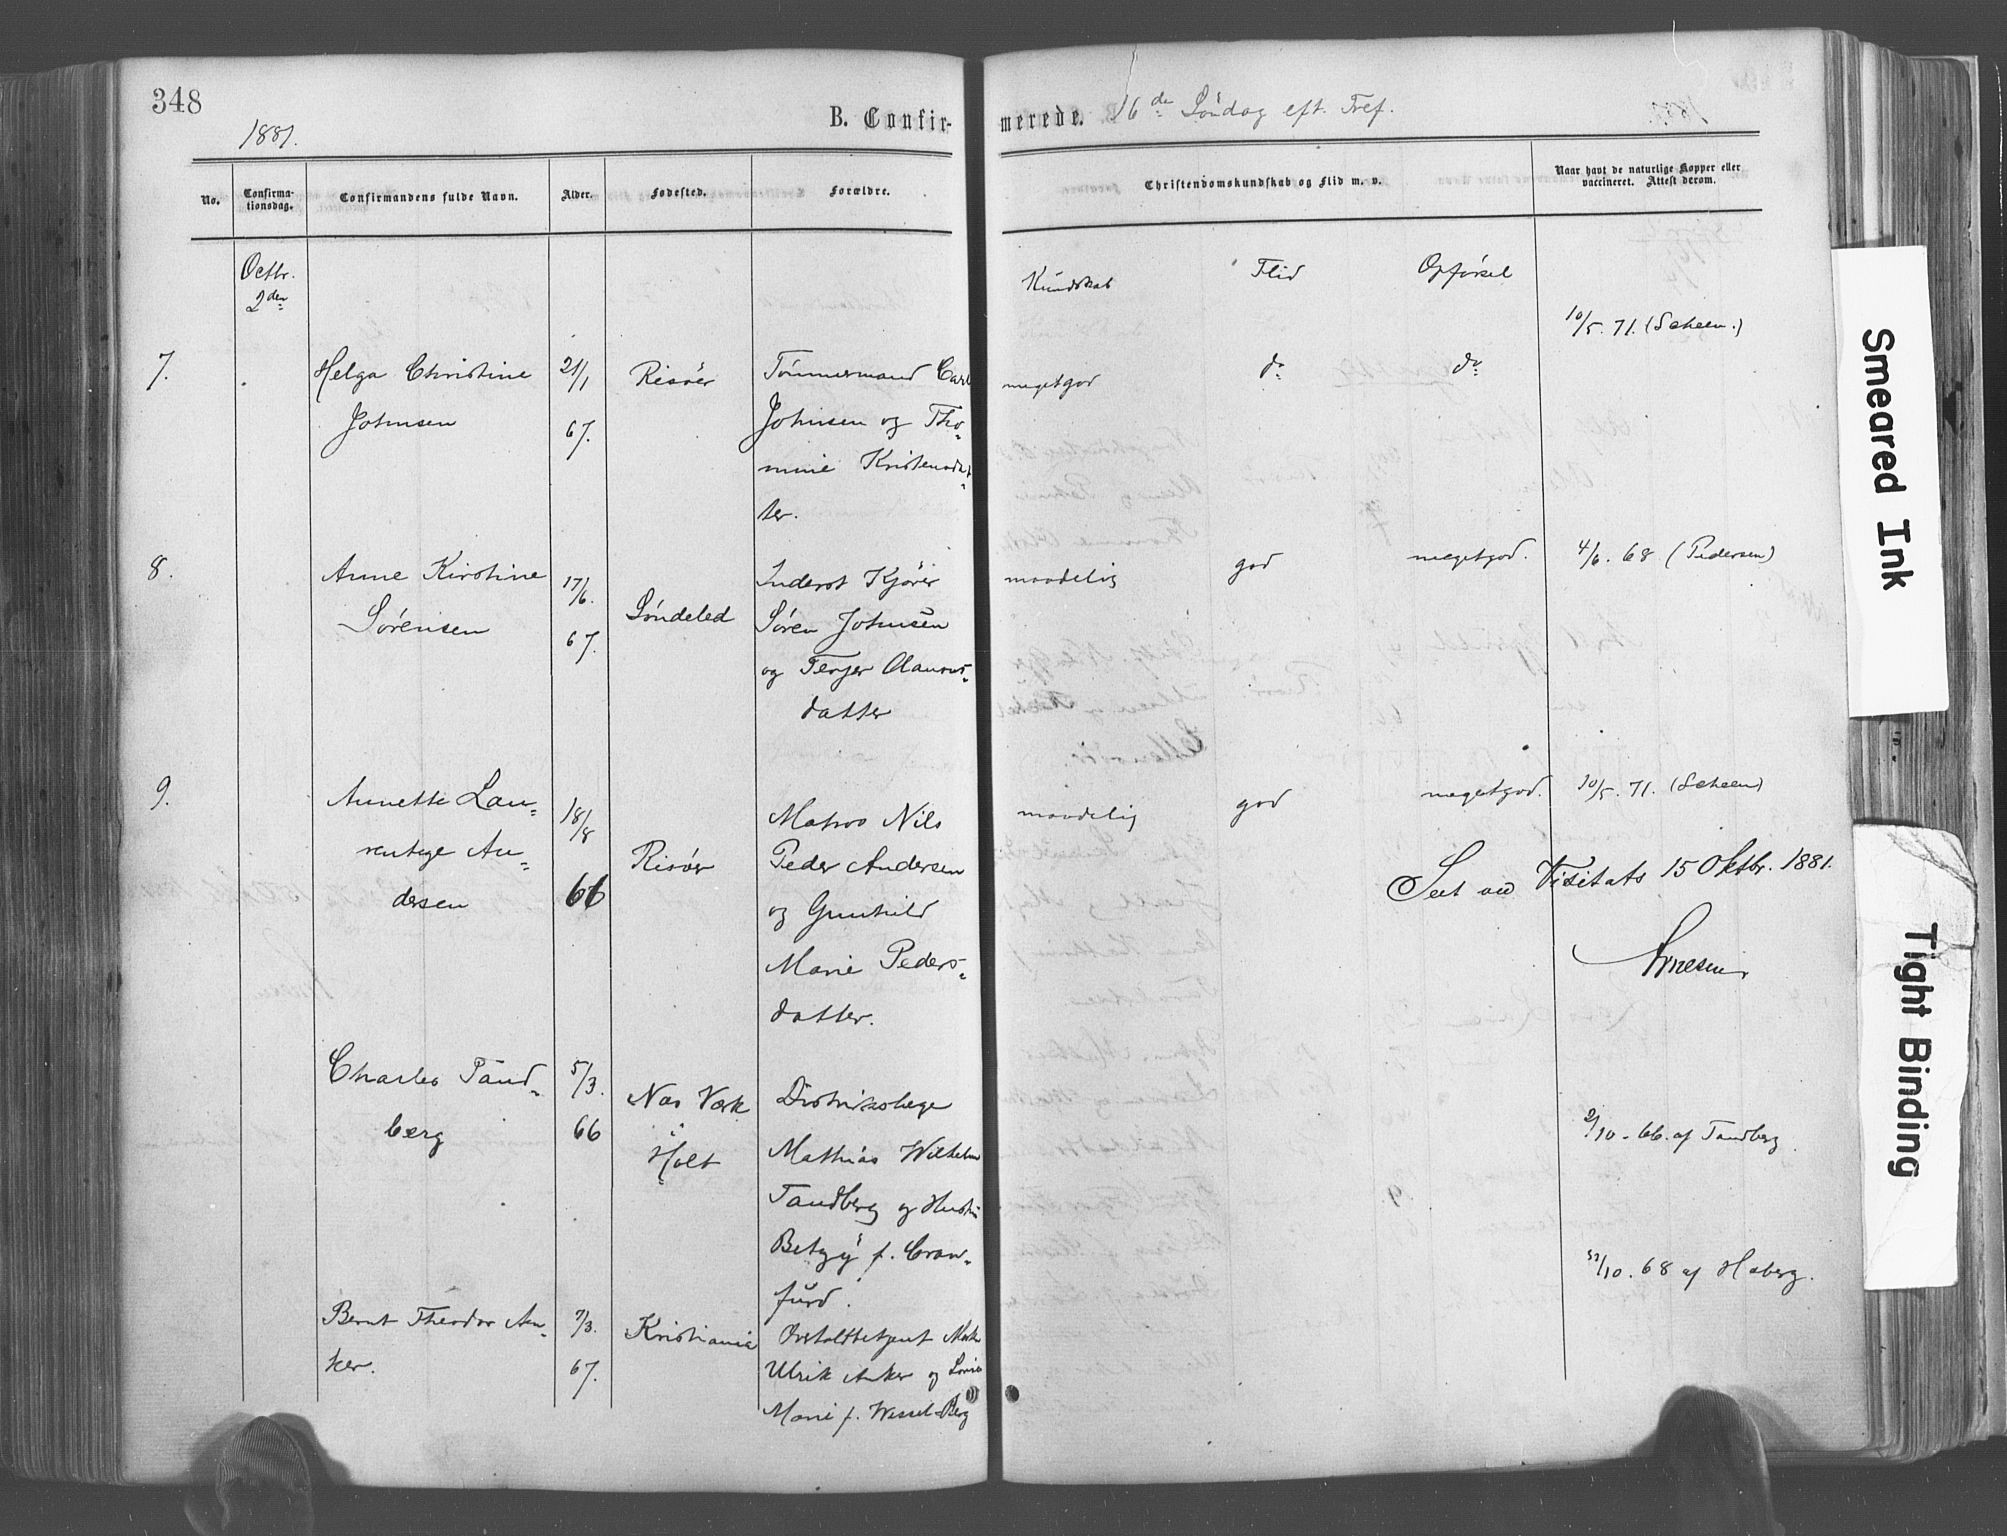 348
1881.
B. Confirmerede. 16de Söndag eft. Tref.
No.
Confirmationsdag.
Confirmandens fulde Navn.
Alder.
Fødested.
Forældre.
Christendomskundskab og Flid m. v.
Naar havt de naturlige Kopper eller
vaccineret. Attest derom.
Octbr.
2den
Kundskab Flid Opførsel
7.
Helga Christine
Johnsen
21/1
67.
Risøer
Tømmermand Carl
Johnsen og Tho-
mine Kristensdat-
ter.
megetgod do do
10/5. 71. (Scheen.)
8.
Anne Kirstine
Sørensen
17/6.
67.
Søndeled
Inderst Kjører
Søren Johnsen
og Terjer Olauss-
datter
maadelig god megetgod.
4/6. 68 (Pedersen)
9.
Annette Lau-
rentze An-
dersen
18/8
66
Risøer
Matros Nils
Peder Andersen
og Gunhild
Marie Peders-
datter.
maadelig god megetgod.
10/5. 71. (Scheen)
Seet ved Visitats 15 Oktbr. 1881.
Arnesen
Charles Tand-
berg
5/3.
66
Næs Værk
Holt
Distriktslæge
Mathias Wilhelm
Tandberg og Hustru
Betzy f. Craw-
furd.
2/10. 66. af Tandberg.
Bernt Theodor An-
ker.
7/3.
67.
Kristiania
Ulrik Anker og Lovise
Marie f. Wessel-Berg
/10. 68 af Hoberg.
Smeared Ink
Tight Binding